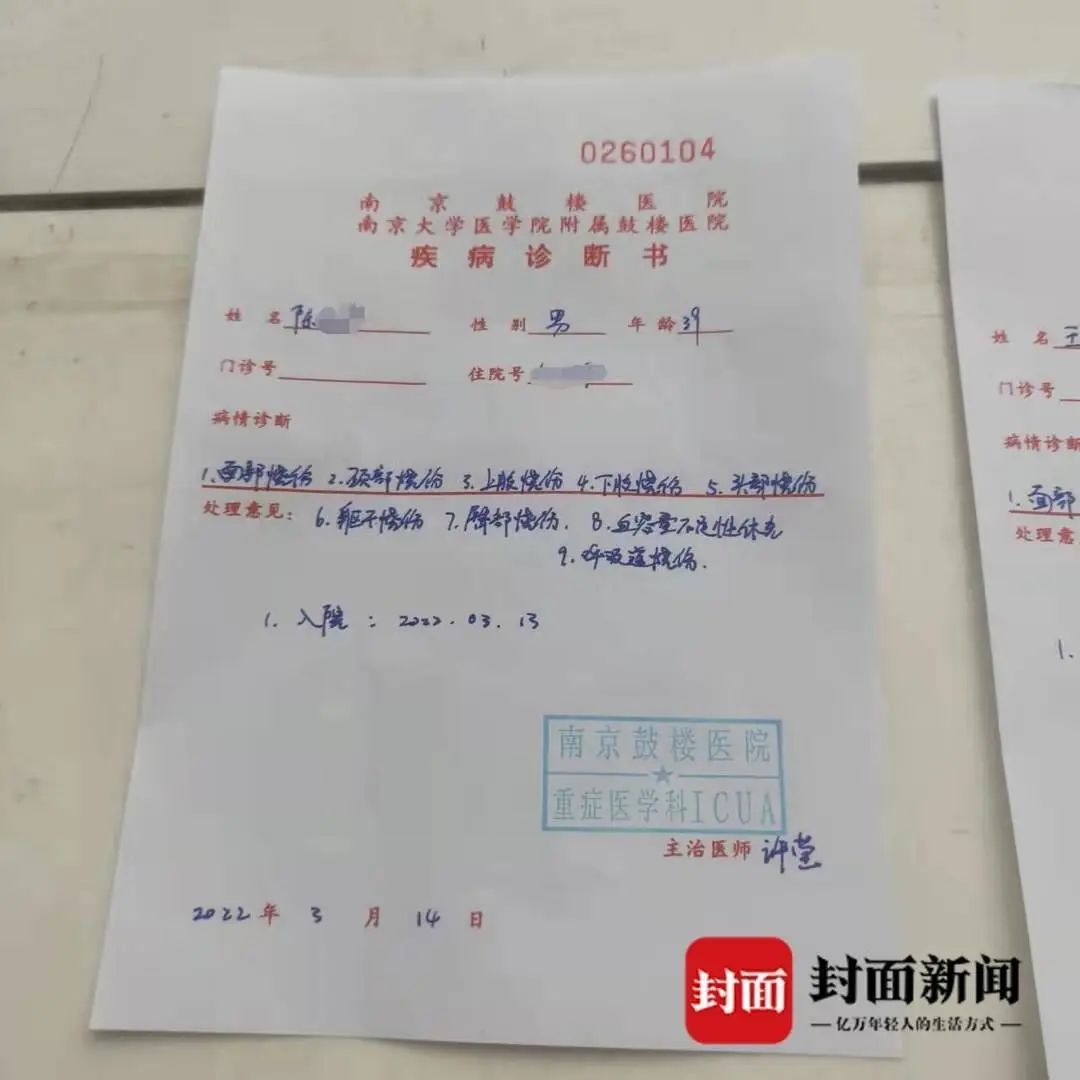 0260104
南京鼓楼医院
南京大学医学院附属鼓楼医院
疾病诊断书
姓名 陈 性别 男 年龄 39
门诊号 住院号
病情诊断
1.面部烧伤 2.颈部烧伤 3.上肢烧伤 4.下肢烧伤 5.头部烧伤
处理意见: 6.躯干烧伤 7.臀部烧伤. 8.血容量不足性休克
9.呼吸道烧伤.
1. 入院: 2022.03.13
南京鼓楼医院
重症医学科ICUA
主治医师 许莹
2022年3月14日
姓名 王
门诊号
病情诊断
1.面部
处理意
1.
封面
封面新闻
亿万年轻人的生活方式